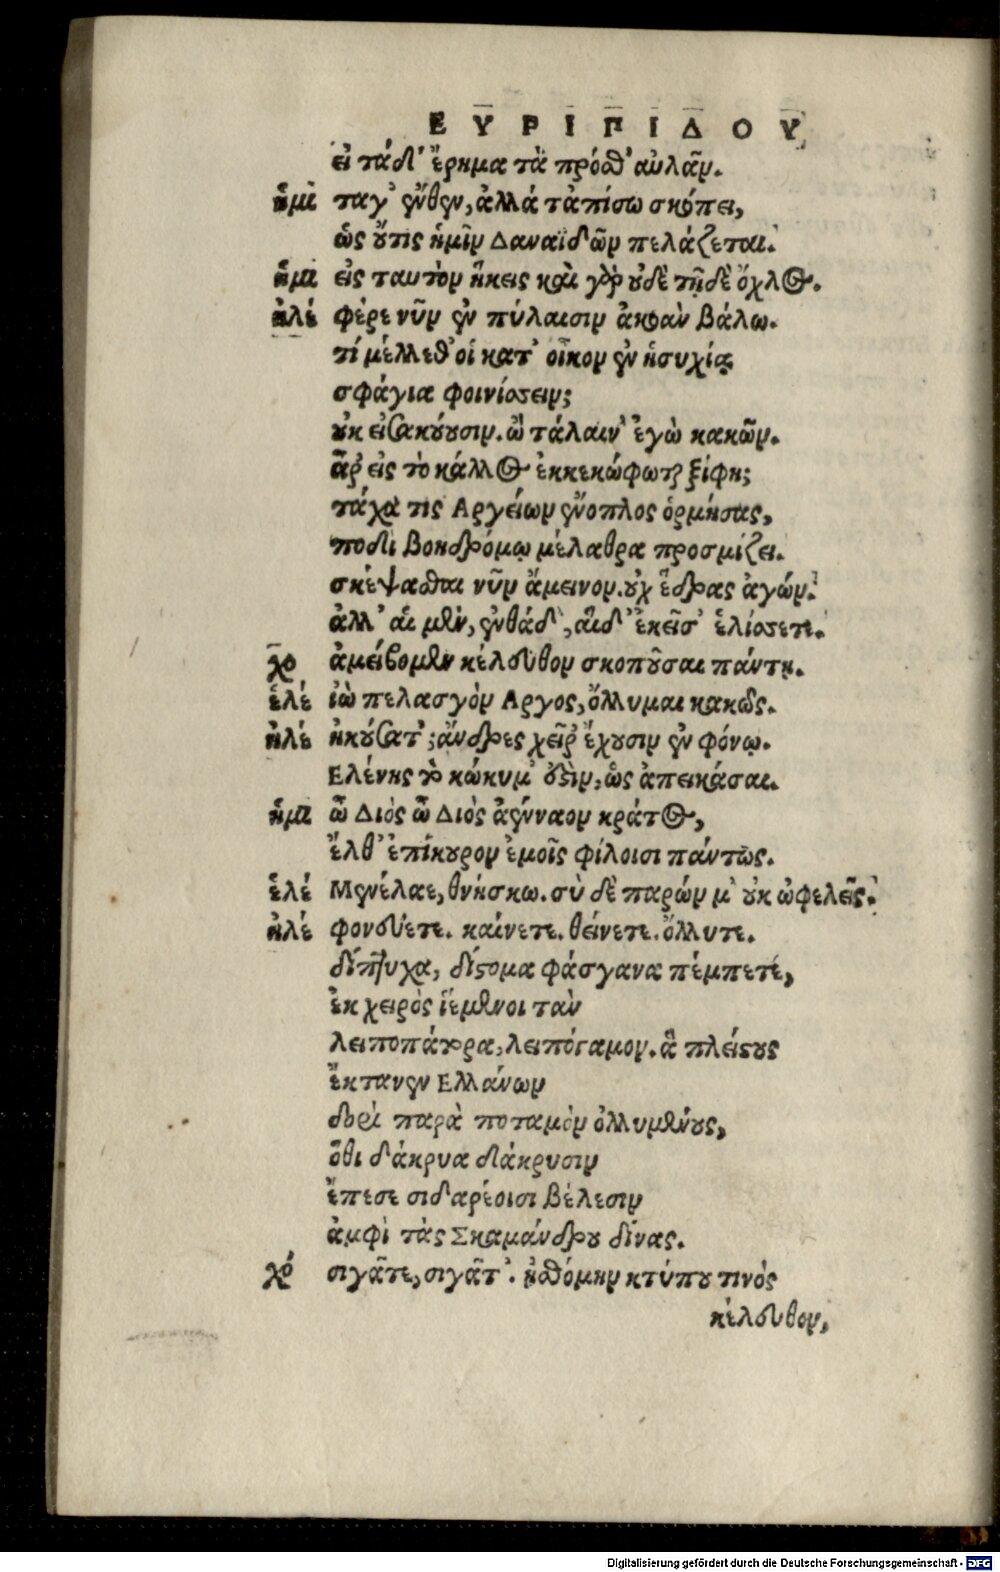 ΕΥΡΙΠΙΔΟΥ
εἰ τάδ' ἔρημα τὰ πρόσθ' αὐλᾶν.
ἡμι ταγ' ἔνθεν, ἀλλά τἀπίσω σκόπει,
ὡς οὔτις ἡμῖν Δαναϊδῶν πελάζεται.
ἡμι εἰς ταυτὸν ἥκεις καὶ γὰρ οὐδὲ τῇδὲ ὄχλος.
ηλέ φέρε νῦν ἐν πύλαισιν ἀκοὰν βάλω.
τί μέλλεθ' οἱ κατ' οἶκον ἐν ἡσυχίᾳ
σφάγια φοινίσσειν;
οὐκ εἰσακούουσιν. ὢ τάλαιν' ἐγὼ κακῶν.
ἆρ' εἰς τὸ κάλλος ἐκκεκώφωται ξίφη;
τάχα τις Αργείων ἔνοπλος ὁρμήσας,
ποδὶ βοηδρόμῳ μέλαθρα προσμίζει.
σκέψασθαι νῦν ἄμεινον. οὐχ ἕδρας ἀγών.
ἀλλ' αἱ μὲν, ἐνθάδ', αἱδ' ἐκεῖσ' ἑλίσσετε.
χο ἀμείβομεν κέλευθον σκοποῦσαι πάντῃ.
ἑλέ ἰὼ πελασγὸν Αργος, ὄλλυμαι κακῶς.
ηλέ ἠκούσατ'; ἄνδρες χεῖρ' ἔχουσιν ἐν φόνῳ.
Ελένης τὸ κώκυμ' ἐστὶν, ὡς ἀπεικάσαι.
ἡμι ὦ Διὸς ὦ Διὸς ἀένναον κράτος,
ἔλθ' ἐπίκουρον ἐμοῖς φίλοισι πάντως.
ἑλέ Μενέλαε, θνήσκω. σὺ δὲ παρών μ' οὐκ ὠφελεῖς.
ηλέ φονεύετε. καίνετε. θείνετε. ὄλλυτε.
δίπτυχα, δίστομα φάσγανα πέμπετέ,
ἐκ χειρὸς ἱέμενοι τὰν
λειποπάτρα, λειπόγαμον. ἃ πλείστους
ἔκτανεν Ελλάνων
δορὶ παρὰ ποταμὸν ὀλλυμένους,
ὅθι δάκρυα δάκρυσιν
ἔπεσε σιδαρέοισι βέλεσιν
ἀμφὶ τὰς Σκαμάνδρου δίνας.
χό σιγᾶτε, σιγᾶτ'. ᾐσθόμην κτύπου τινὸς
κέλευθον,
Digitalisierung gefördert durch die Deutsche Forschungsgemeinschaft - DFG